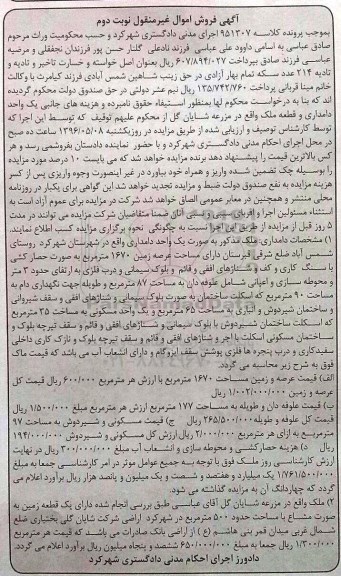 آگهی فروش اموال غیرمنقول نوبت دوم
بموجب پرونده کلاسه ۹۵۱۳۰۷ اجرای مدنی دادگستری شهرکرد و حسب محکومیت وراث مرحوم
صادق عباسی به اسامی داوود علی عباسی فرزند نادعلی گلنار حسن پور فرزندان نجفقلی و مرضیه
عباسی فرزند صادق بپرداخت ۶۰۷/۸۹۴/۰۲۷ ریال بعنوان اصل خواسته و خسارت تاخیر و تادیه و
تادیه ۲۱۴ عدد سکه تمام بهار آزادی در حق زینب شاهین شمس آبادی فرزند کیامرث با وکالت
خانم مینا قربانی پرداخت ۱۳۵/۷۴۲/۷۶۰ ریال نیم عشر دولتی در حق صندوق دولت محکوم گردیده
اند که بنا به درخواست محکوم لها بمنظور استیفاء حقوق نامبرده و هزینه های جانبی یک واحد
دامداری و قطعه ملک واقع در مزرعه شایان گل از محکوم علیهم توقیف که توسط این اجرا که
توسط کارشناس توصیف و ارزیابی شده از طریق مزایده در روزیکشنبه ۱۳۹۶/۰۵/۰۸ ساعت ده صبح
در محل اجرای احکام مدنی دادگستری شهرکرد و با حضور نماینده دادستان بفروشمی رسد و هر
کس بالاترین قیمت را پیشنهاد دهد برنده مزایده خواهد شد که می بایست ۱۰ درصد مورد مزایده
را بوسیله چک تضمین شده واریز و همراه خود بیاورد در غیر اینصورت وجوه واریزی پس از کسر
هزینه مزایده به نفع صندوق دولت ضبط و مزایده تجدید خواهد شد این گواهی برای یکبار در روزنامه
محلی منتشر و همچنین در معابر عمومی الصاق خواهد شد شرکت در مزایده برای عموم آزاد است به
استثناء مسئولین اجرا و اقربای سببی و نسبی آنان ضمنا متقاضیان شرکت مزایده می توانند در مدت
۵ روز قبل از مزایده از طریق این اجرا نسبت به چگونگی نحوه برگزاری مزایده کسب اطلاع نمایند.
۱) مشخصات دامداری ملک مذکور به صورت یک واحد دامداری واقع در شهرستان شهرکرد روستای
شمس آباد ضلع شرقی قبرستان دارای مساحت عرصه زمین ۱۶۷۰ مترمربع به صورت حصار کشی
با سنگ کاری و کف و شناژهای افقی و قائم و بلوک سیمانی و درب فلزی به ارتفای حدود ۳ متر
و محوطه سازی و اعیانی شامل علوفه دان به مساحت ۸۷ مترمربع و طویله جهت نگهداری دام به
مساحت ۹۰ مترمربع که اسکلت ساختمان به صورت بلوک سیمانی و شناژهای افقی و سقف شیروانی
و ساختمان شیردوش و انباری به مساحت ۶۵ مترمربع و یک واحد مسکونی به مساحت ۳۵ مترمربع
که اسکلت ساختمان شیردوش با بلوک سیمانی و شناژهای افقی و قائم و سقف تیرچه بلوک و
ساختمان مسکونی اسکلت با آجر و شناژهای افقی و قائم و سقف تیرچه بلوک و نازک کاری داخلی
سفیدکاری و درب پنجره ها فلزی پوشش سقف ایزوگام و دارای انشعاب آب می باشد که قیمت ملک
فوق به شرح زیر محاسبه می گردد.
الف) قیمت عرصه و زمین مساحت ۱۶۷۰ مترمربع با ارزش هر مترمربع ۶۰۰/۰۰۰ ریال قیمت کل
عرصه و زمین ۱/۰۰۲/۰۰۰/۰۰۰ ریال
ب) قیمت علوفه دان و طویله به مساحت ۱۷۷ مترمربع ارزش هر مترمربع مبلغ ۱/۵۰۰/۰۰۰ ریال
قیمت کل علوفه و طویله ۲۶۵/۵۰۰/۰۰۰ ریال ج) قیمت مسکونی و شیردوش به مساحت ۹۷
مترمربع به ازای هر مترمربع ۲/۰۰۰/۰۰۰ ریال ارزش کل مسکونی و شیردوش ۱۹۴/۰۰۰/۰۰۰
ریال د) هزینه حصارکشی و محوطه سازی و انشعاب آب مبلغ ۳۰۰/۰۰۰/۰۰۰ ریال در نهایت
ارزش کارشناسی روز ملک فوق با توجه به جمیع عوامل موثر در امر کارشناسی جمعا به مبلغ
۱/۷۶۱/۵۰۰/۰۰۰ یک میلیارد و هفتصد و شصت و یک میلیون و پانصد هزار ریال برآورد اعلام می
گردد که چهاردانگ آن به مزایده گذاشته می شود.
۲) ملک واقع در مزرعه شایان گل آقای عباسی طبق بررسی انجام شده دارای یک قطعه زمین به
صورت مشاع با مساحت حدود ۵۰۰ مترمربع در شهرکرد اراضی شرکت شایان گلی بختیاری ضلع
شمال غربی میدان قمر بنی هاشم (ع) از اراضی بانک صادرات می باشد که قیمت هر مترمربع
۱/۳۰۰/۰۰۰ ریال جمعا به مبلغ ۶۵۰/۰۰۰/۰۰۰ ششصد و پنجاه میلیون ریال برآورد اعلام می گردد.
دادورز اجرای احکام مدنی دادگستری شهرکرد